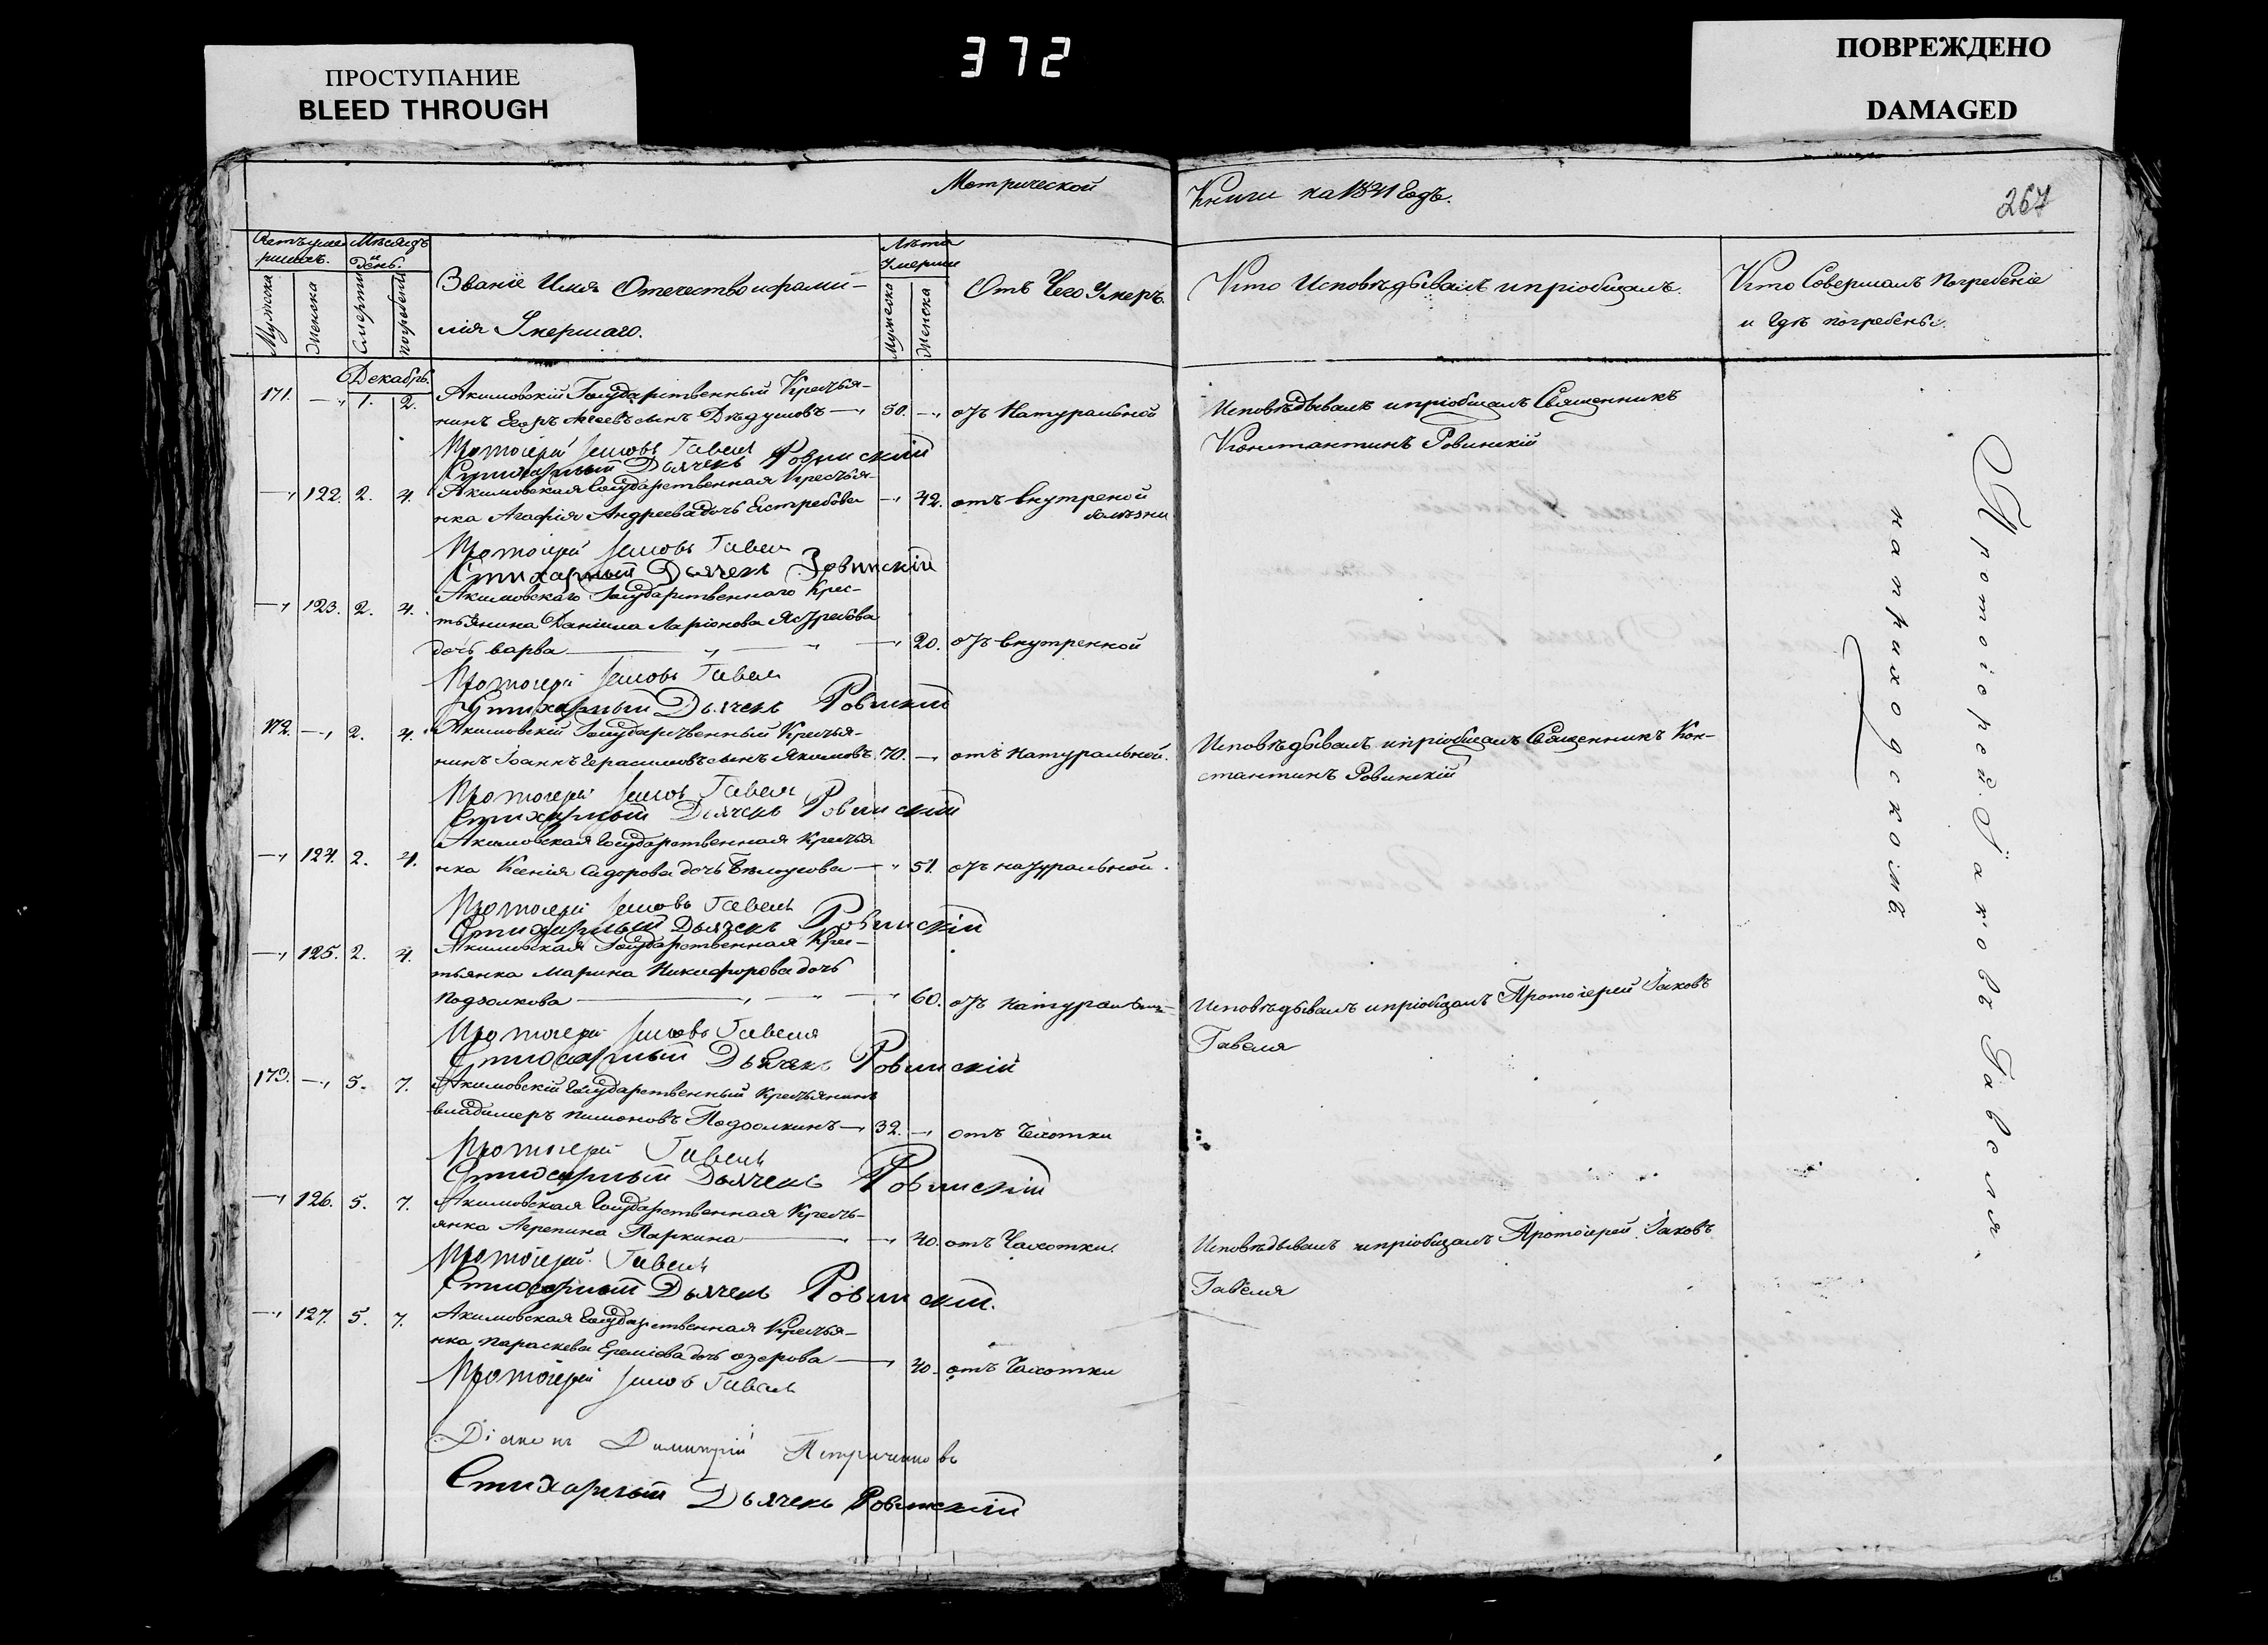 ПРОСТУПАНИЕ
BLEED THROUGH
372
ПОВРЕЖДЕНО
DAMAGED
Метрической
Книги на 1841 Годъ.
267
Счетъ умер-
шихъ.
Мѣсяцъ
и
день.
Мужска
Женска
Смерти
погребені
Званіе Имя Отечество и фами-
лія Умершаго.
Лѣта
Умерши
Мужеска
Женска
Отъ Чего Умеръ.
Кто Исповѣдывалъ и пріобщалъ.
Кто Совершалъ Погребеніе
и Гдѣ погребены.
Декабрь.
171. —„ 1. 2. Акимовскій Государственный Крестья-
нинъ Егоръ сынъ Дѣдушовъ —„ 50. —„ отъ Натуральной
Исповѣдывалъ и пріобщалъ Священникъ
Константинъ Ровинскій
Протоіерей Іаковъ Гавеля
Стихарный Дьячекъ Ровинскій
—„ 122. 2. 4. Акимовская Государственная Крестья-
нка Агафія Андреева дочь Естребова —„ 42. отъ внутреной
болѣзни
Протоіерей Іаковъ Гавеля
Стихарный Дьячекъ Ровинскій
—„ 123. 2. 4. Акимовскаго Государственнаго Крес-
тьянина Даніила Ларіонова Ястребова
дочь варва —„ —„ —„ 20. отъ внутренной
Протоіерей Іаковъ Гавеля
Стихарный Дьячекъ Ровинскій
172. —„ 2. 4. Акимовскій Государственный Крестья-
нинъ Іоаннъ Герасимовъ сынъ Якимовъ 70. —„ отъ натуральной.
Исповѣдывалъ и пріобщалъ Священникъ Кон-
стантинъ Ровинскій
Протоіерей Іаковъ Гавеля
Стихарный Дьячекъ Ровинскій
—„ 124. 2. 4. Акимовская Государственная Крестья
нка Ксенія Сидорова дочь Бѣлоусова —„ 51. отъ натуральной.
Протоіерей Іаковъ Гавеля
Стихарный Дьячекъ Ровинскій
—„ 125. 2. 4. Акимовская Государственная Крес-
тьянка Марина Никифорова дочь
Подзолкова —„ —„ —„ 60. отъ натуральн
Исповѣдывалъ и пріобщалъ Протоіерей Іаковъ
Гавеля
Протоіерей Іаковъ Гавеля
Стихарный Дьячекъ Ровинскій
173. —„ 5. 7. Акимовскій Государственный Крестьянинъ
владимеръ Пимоновъ Подзолкинъ —„ 32. —„ отъ Чахотки
Протоіерей Гавеля
Стихарный Дьячекъ Ровинскій
—„ 126. 5. 7. Акимовская Государственная Кресть-
янка Агрепина Паркина —„ —„ 40. отъ Чахотки.
Исповѣдывалъ и пріобщалъ Протоіерей Іаковъ
Гавеля
Протоіерей Гавеля
Стихарный Дьячекъ Ровинскій.
—„ 127. 5. 7. Акимовская Государственная Крестья-
нка Параскева Ереміева дочь озерова —„ 40. отъ Чахотки
Протоіерей Іаковъ Гавеля
Діаконъ Димитрій
Стихарный Дьячекъ Ровинскій
Протоіерей Іаковъ Гавеля.
на приходскомъ